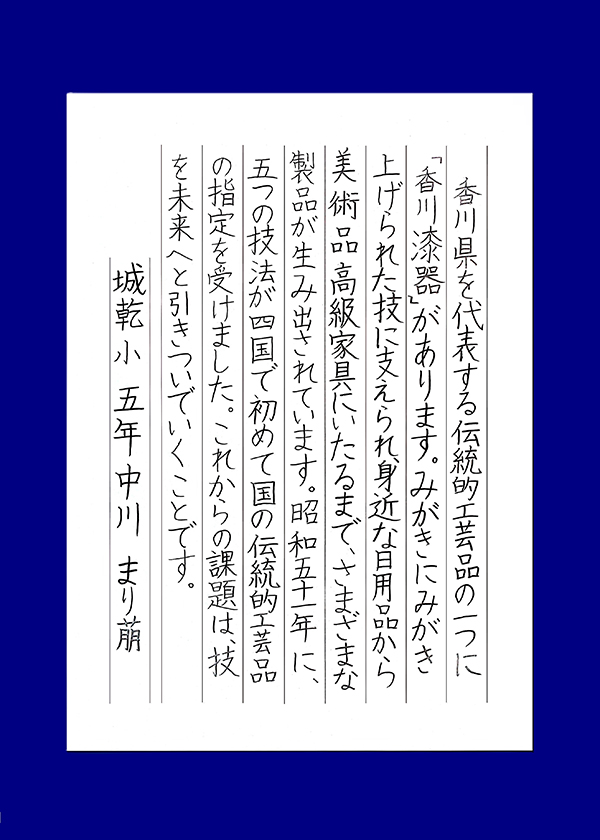 香川県を代表する伝統的工芸品の一つに
「香川漆器」があります。みがきにみがき
上げられた技に支えられ、身近な日用品から
美術品高級家具にいたるまで、さまざまな
製品が生み出されています。昭和五十一年に、
五つの技法が四国で初めて国の伝統的工芸品
の指定を受けました。これからの課題は、技
を未来へと引きついでいくことです。
城乾小 五年 中川 まり萠